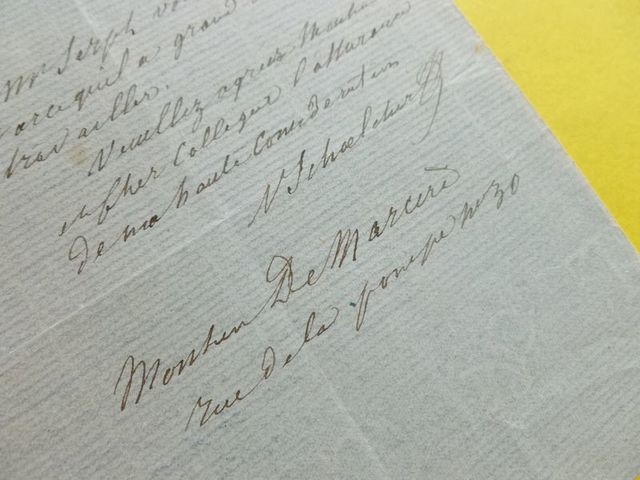 Mr Serph vo
parcequ'il a grand
travailler.
Veuillez agréer Monsieur
et cher Collegue l'assurance
de ma haute consideration
V Schoelcher
Monsieur De Marcère
rue de la pompe no 30